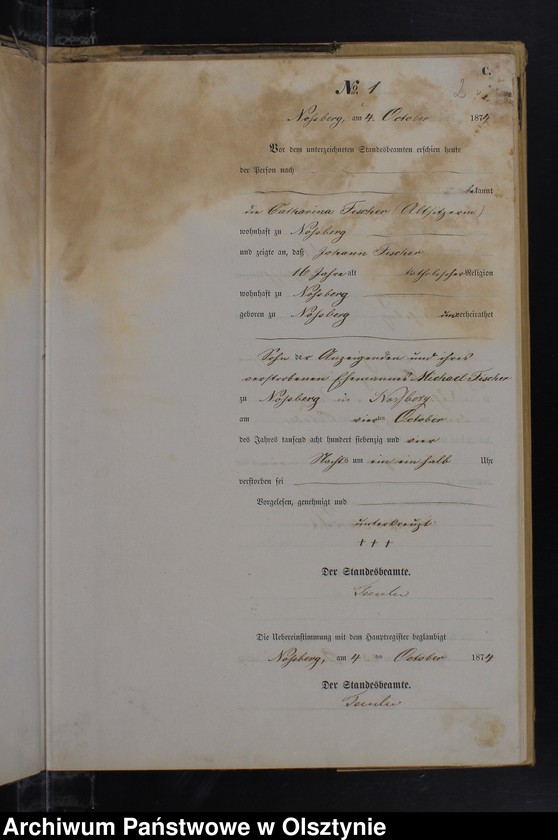 C.
№ 1
2
Nossberg, am 4. October 1874
Vor dem unterzeichneten Standesbeamten erschien heute
der Person nach
bekannt
die Catharina Fischer (Altsitzerin)
wohnhaft zu Nossberg
und zeigte an, daß Johann Fischer
16 Jahre alt katholischer Religion
wohnhaft zu Nossberg
geboren zu Nossberg unverheirathet
Sohn der Anzeigenden und ihres
verstorbenen Ehemannes Michael Fischer
zu Nossberg in Nossberg
am vierten October
des Jahres tausend acht hundert siebenzig und vier
Nachts um ein ein halb Uhr
verstorben sei
Vorgelesen, genehmigt und
unterkreuzt
+ + +
Der Standesbeamte.
Die Uebereinstimmung mit dem Hauptregister beglaubigt
Nossberg, am 4 ten October 1874
Der Standesbeamte.
Archiwum Państwowe w Olsztynie